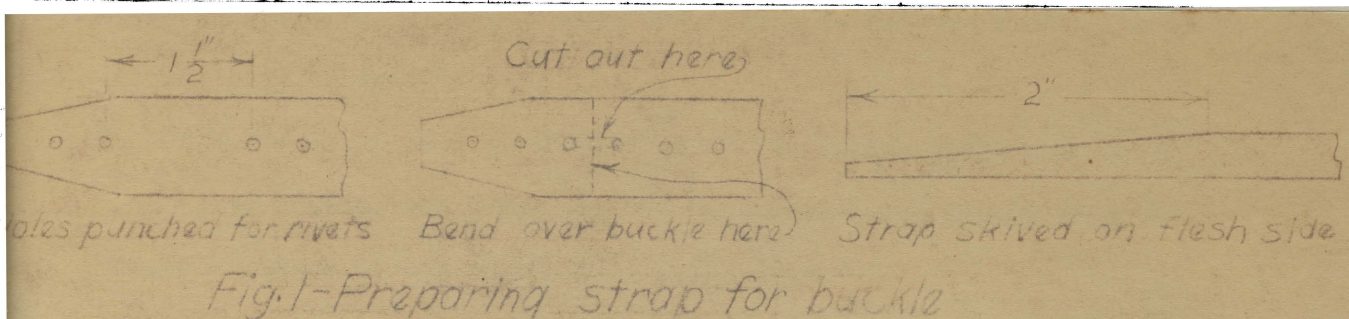 1 1/2"
Cut out here
2"
oles punched for rivets
Bend over buckle here
Strap skived on flesh side
Fig. 1-Preparing strap for buckle